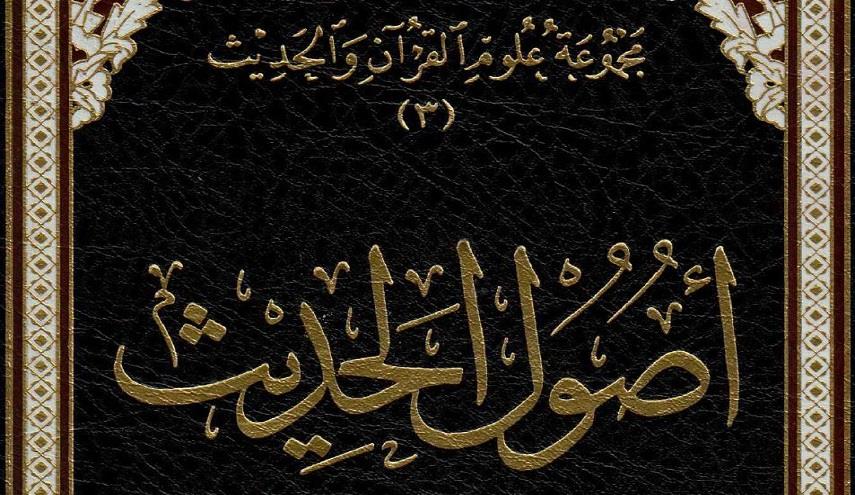 مَجْمُوعَةُ عُلُومِ ٱلقُرْآنِ وَٱلحَدِيْث
(٣)
أُصُوْلُ الحَدِيْث